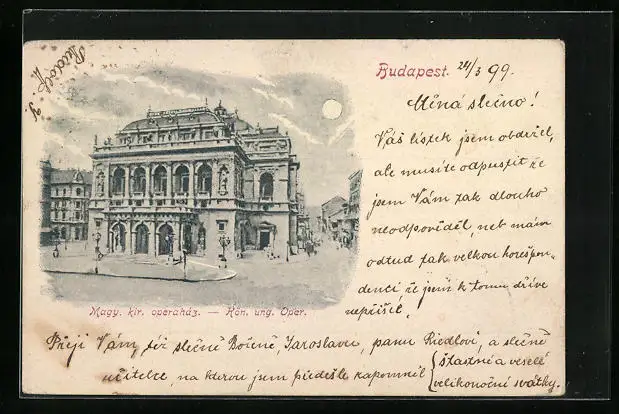 Rudolf. J.
Budapest. 24/3 99.
Milá slečno!
Váš lístek jsem obdržel,
ale musíte odpustit že
jsem Vám tak dlouho
neodpověděl, neb mám
odtud tak velkou korešpon-
denci že jsem k tomu dříve
nepřišel,
Magy. kir. operaház. — Kön. ung. Oper.
Přeji Vám, též slečně Boženě, Jaroslavu, panu Riedlovi, a slečně
učitelce, na kterou jsem předešle zapomněl
šťastné a veselé
velikonoční svátky.